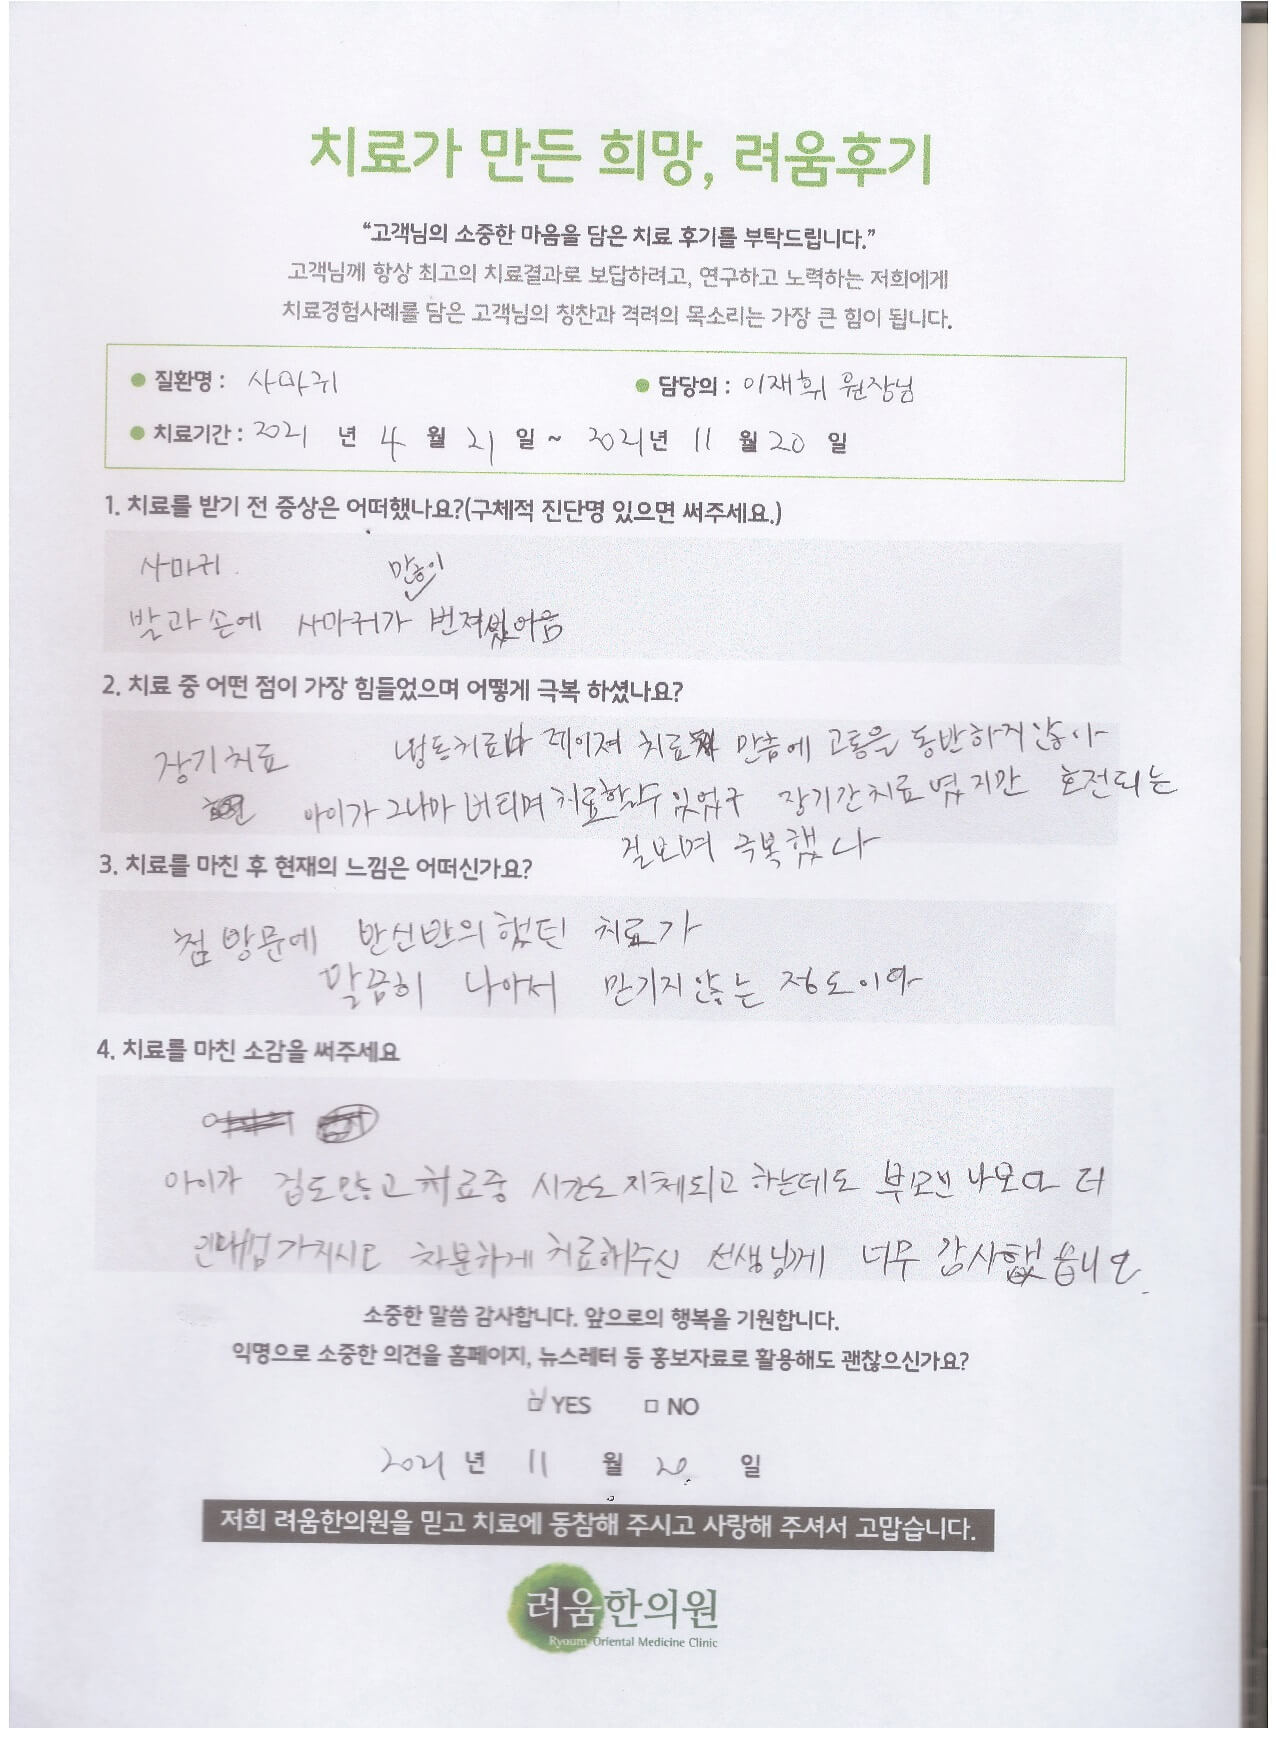 치료가 만든 희망, 려움후기
“고객님의 소중한 마음을 담은 치료 후기를 부탁드립니다.”
고객님께 항상 최고의 치료결과로 보답하려고, 연구하고 노력하는 저희에게
치료경험사례를 담은 고객님의 칭찬과 격려의 목소리는 가장 큰 힘이 됩니다.
● 질환명 : 사마귀 ● 담당의 : 이재휘 원장님
● 치료기간 : 2021 년 4 월 21 일 ~ 2021년 11 월 20 일
1. 치료를 받기 전 증상은 어떠했나요?(구체적 진단명 있으면 써주세요.)
사마귀. 많이
발과 손에 사마귀가 번져있었음
2. 치료 중 어떤 점이 가장 힘들었으며 어떻게 극복 하셨나요?
장기치료 냉동치료나 레이져 치료 만큼에 고통을 동반하지 않아
아이가 그나마 버티며 치료할수 있었구 장기간치료 였지만 호전되는
걸보며 극복했다
3. 치료를 마친 후 현재의 느낌은 어떠신가요?
첨 방문에 반신반의 했던 치료가
말끔히 나아서 믿기지 않는 정도이다
4. 치료를 마친 소감을 써주세요
아이가 겁도많고 치료중 시간도 지체되고 하는데도 부모인 나보다 더
인내심 가지시고 차분하게 치료해주신 선생님께 너무 감사했읍니다.
소중한 말씀 감사합니다. 앞으로의 행복을 기원합니다.
익명으로 소중한 의견을 홈페이지, 뉴스레터 등 홍보자료로 활용해도 괜찮으신가요?
☑ YES □ NO
2021 년 11 월 20 일
저희 려움한의원을 믿고 치료에 동참해 주시고 사랑해 주셔서 고맙습니다.
려움한의원
Ryoum Oriental Medicine Clinic